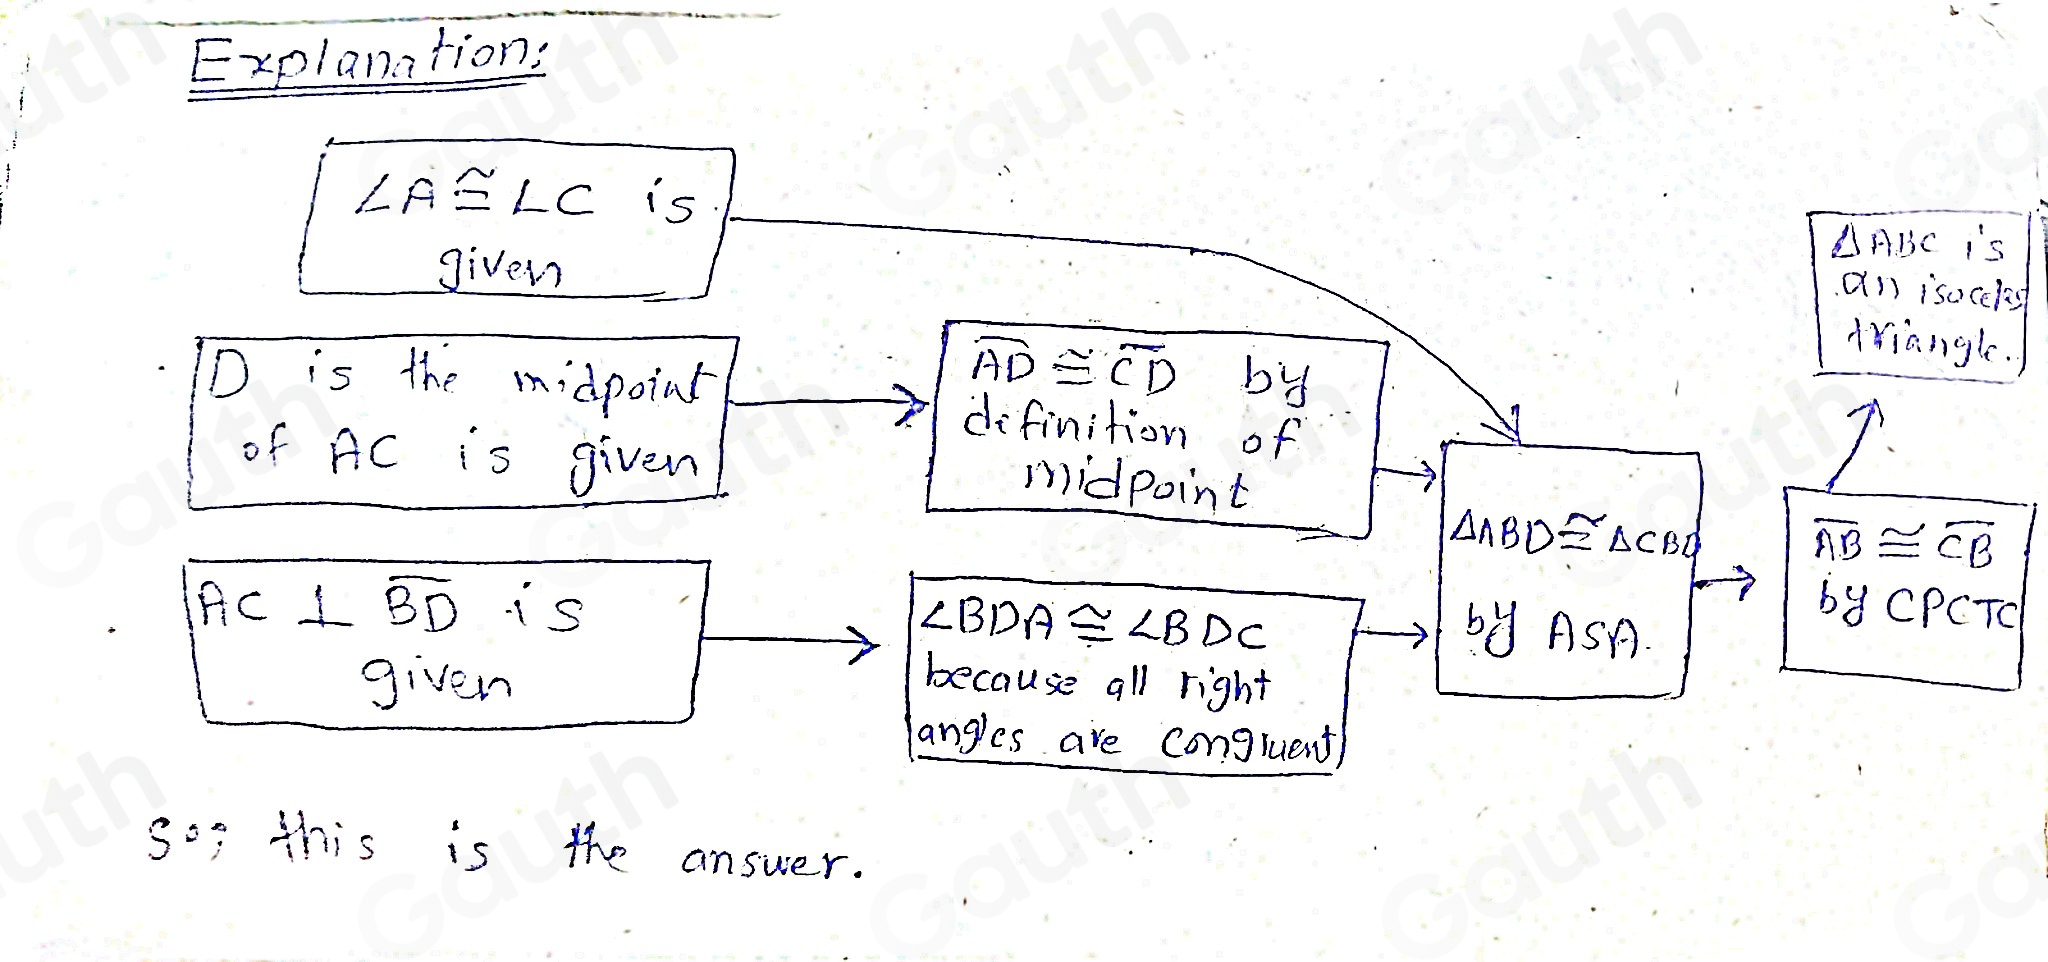 Explanation:
∠A ≅ ∠C is
given
D is the midpoint
of AC is given
AC ⊥ BD is
given
AD ≅ CD by
definition of
midpoint
∠BDA ≅ ∠BDC
because all right
angles are congruent
ΔABD ≅ ΔCBD
by ASA.
AB ≅ CB
by CPCTC
ΔABC is
an isoceles
triangle.
So; this is the answer.
Gauth